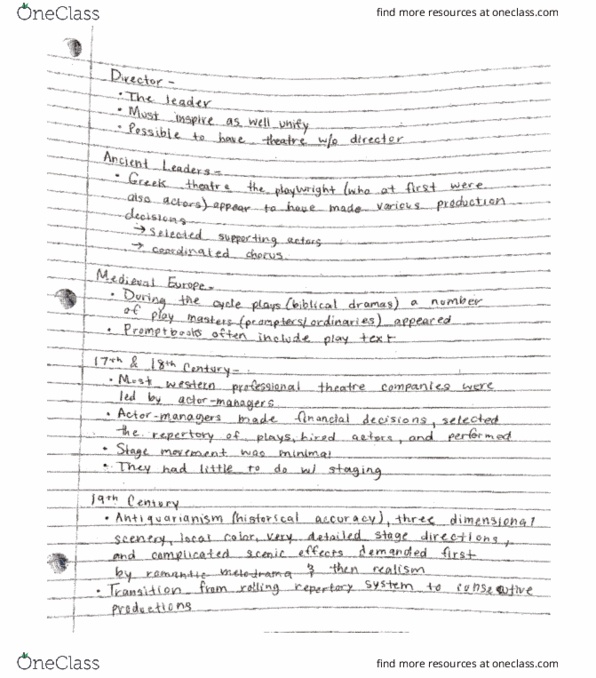 OneClass
find more resources at oneclass.com
Director -
• The leader
• Must inspire as well unify
• Possible to have theatre w/o director
Ancient Leaders -
• Greek theatre the playwright (who at first were
also actors) appear to have made various production
decisions
→ selected supporting actors
→ coordinated chorus
Medieval Europe -
• During the cycle plays (biblical dramas) a number
of play masters (prompters/ordinaries) appeared
• Promptbooks often include play text
17th & 18th Century -
• Most western professional theatre companies were
led by actor-managers
• Actor-managers made financial decisions, selected
the repertory of plays, hired actors, and performed
• Stage movement was minimal
• They had little to do w/ staging
19th Century
• Antiquarianism (historical accuracy), three dimensional
scenery, local color, very detailed stage directions,
and complicated scenic effects demanded first
by romantic melodrama & then realism
• Transition from rolling repertory system to consecutive
productions
OneClass
find more resources at oneclass.com